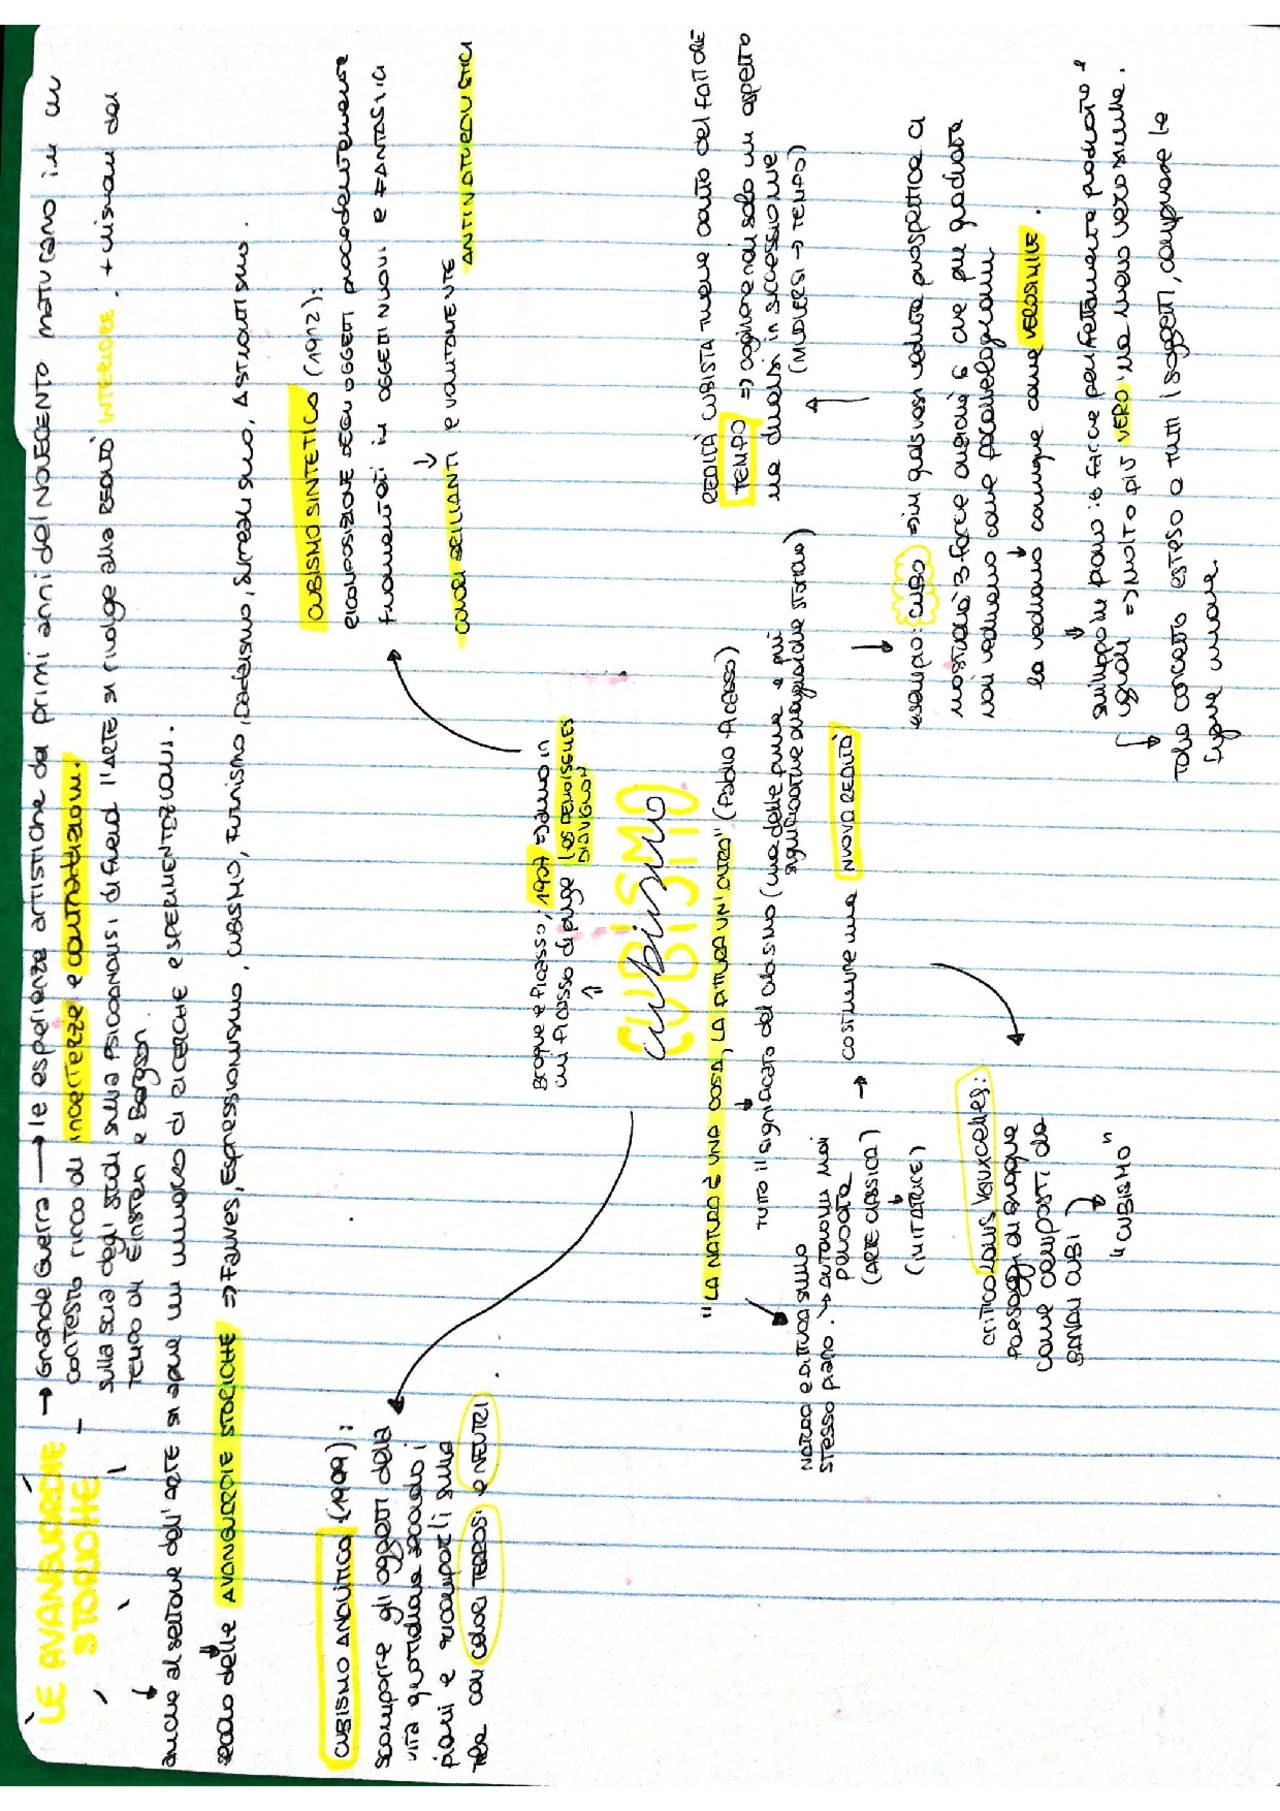 LE AVANGUARDIE
STORICHE
→ Grande Guerra → le esperienze artistiche dei primi anni del NOVECENTO maturano in un
contesto ricco di incertezze e contraddizioni.
sulla scia degli studi sulla PSICOANALISI di Freud l'ARTE si rivolge alla REALTÀ INTERIORE. + visioni del
TEMPO di EINSTEIN e Bergson.
anche al settore dell'ARTE si apre un numero di RICERCHE e SPERIMENTAZIONI.
secolo delle AVANGUARDIE STORICHE => FAUVES, Espressionismo, CUBISMO, FUTURISMO, DADAISMO, SURREALISMO, ASTRATTISMO.
CUBISMO ANALITICO (1909):
scomporre gli oggetti della
vita quotidiana secondo i
piani e ricomporli sulla
tela con COLORI TERROSI e NEUTRI
CUBISMO SINTETICO (1912):
RICOMPOSIZIONE DEGLI OGGETTI precedentemente
frammentati in OGGETTI NUOVI e FANTASTICI
COLORI BRILLANTI e volutamente ANTINATURALISTICI
Braque e Picasso; 1907 => anno in
cui Picasso dipinge LES DEMOISELLES
D'AVIGNON
CUBISMO
cubismo
"LA NATURA È UNA COSA, LA PITTURA UN'ALTRA" (Pablo Picasso)
TUTTO il significato del cubismo (una delle prime e più
significative avanguardie storiche)
NATURA e PITTURA sullo
STESSO piano. → AUTONOMIA mai
pensata
(ARTE CLASSICA) → COSTRUIRE una NUOVA REALTÀ
(IMITATRICE)
critico Louis Vauxcelles:
PAESAGGI di Braque
come composti da
BANALI CUBI
"CUBISMO"
REALTÀ CUBISTA tiene conto del FATTORE
TEMPO => cogliere non solo un aspetto
ma diversi in successione
(MUOVERSI → TEMPO)
esempio: CUBO => in qualsiasi veduta prospettica ci
mostrerà 3 facce anziché 6 che pur quadrate
noi vediamo come parallelogrammi
lo vediamo comunque come VEROSIMILE.
sviluppo in piano: 6 facce perfettamente quadrate e
uguali => molto più VERO ma meno verosimile.
tale concetto esteso a tutti i soggetti, comprese le
figure umane.